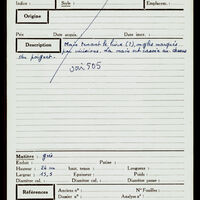 Index : Sole : Emplacem. :
Origine
Prix Date acquis. Date inv.
Description Main tenant le livre (?), ongles marqués
par incisions. La main est cassée au dessus
du poignet.
voir 505
Matière : gris
Enduit : Patine :
Hauteur : 24 cm haut. tenon : Longueur :
Largeur : 15,5 Epaisseur : Poids :
Diamètre col. : Diamètre panse :
Références Anciens n° : N° Feuilles :
Dossier n° : Analyse n° :